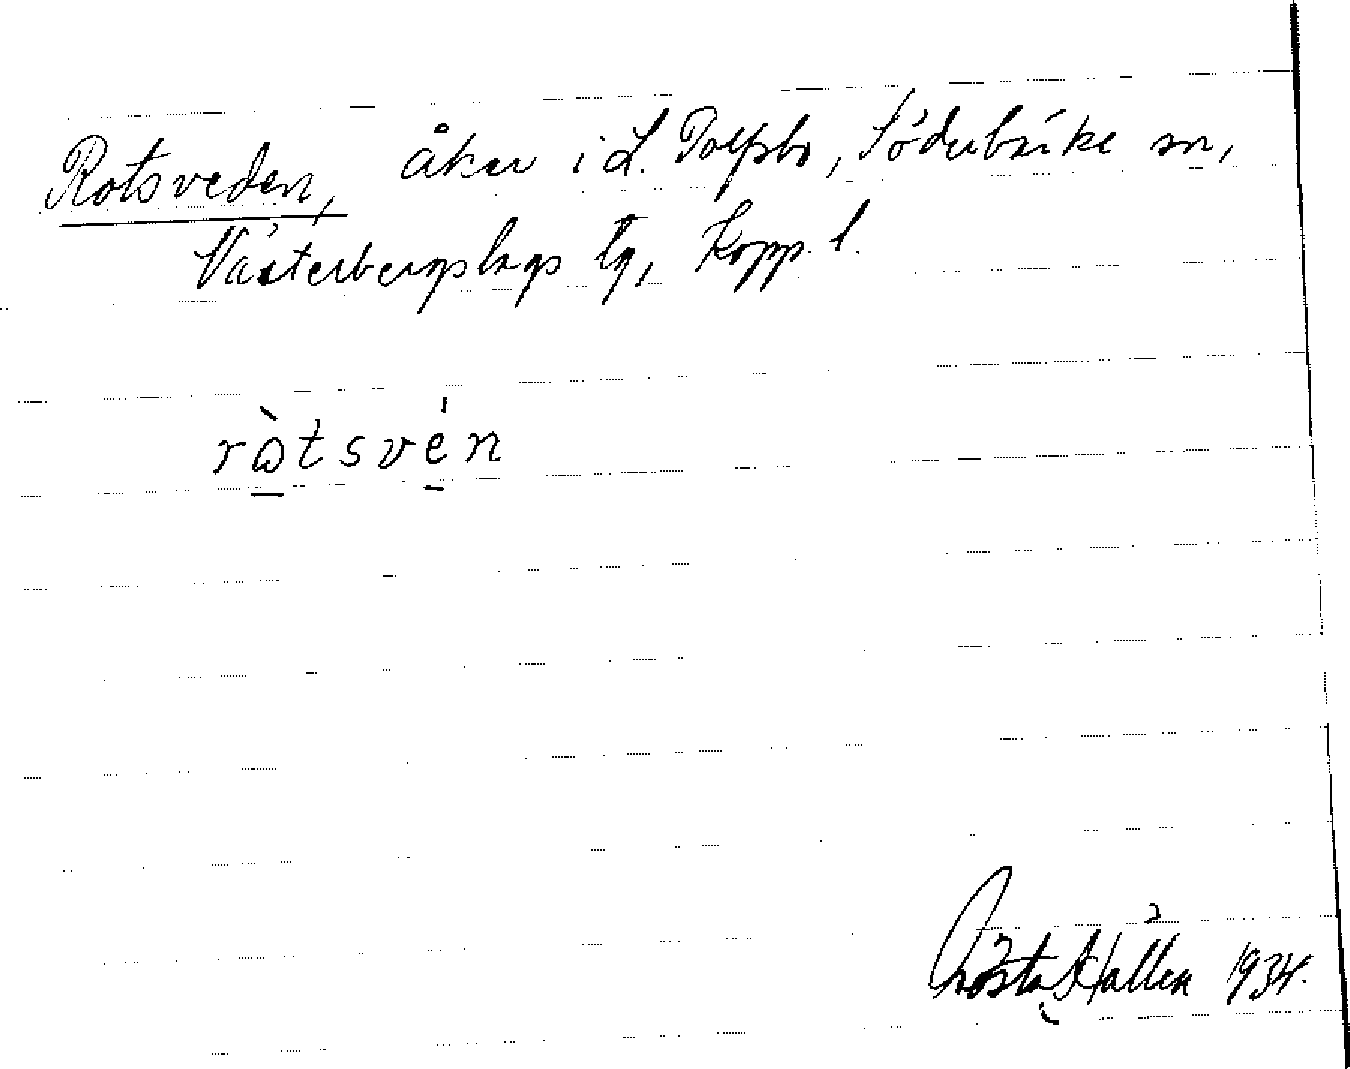 Rotsveden, åker i L. Tolfsbo, Söderbärke sn,
Västerbergslags tg, Kopp. l.
ròtsvén
Gösta Hallén 1934.